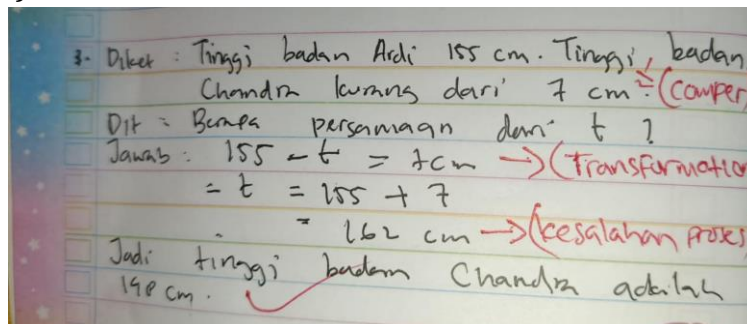 3. Diket : Tinggi badan Ardi 155 cm. Tinggi badan
Chandra kurang dari 7 cm = (Comper
Dit : Berapa persamaan dari t ?
Jawab : 155 - t = 7cm → (Transformatio
= t = 155 + 7
= 162 cm → (kesalahan proses
Jadi tinggi badan Chandra adalah
148 cm.